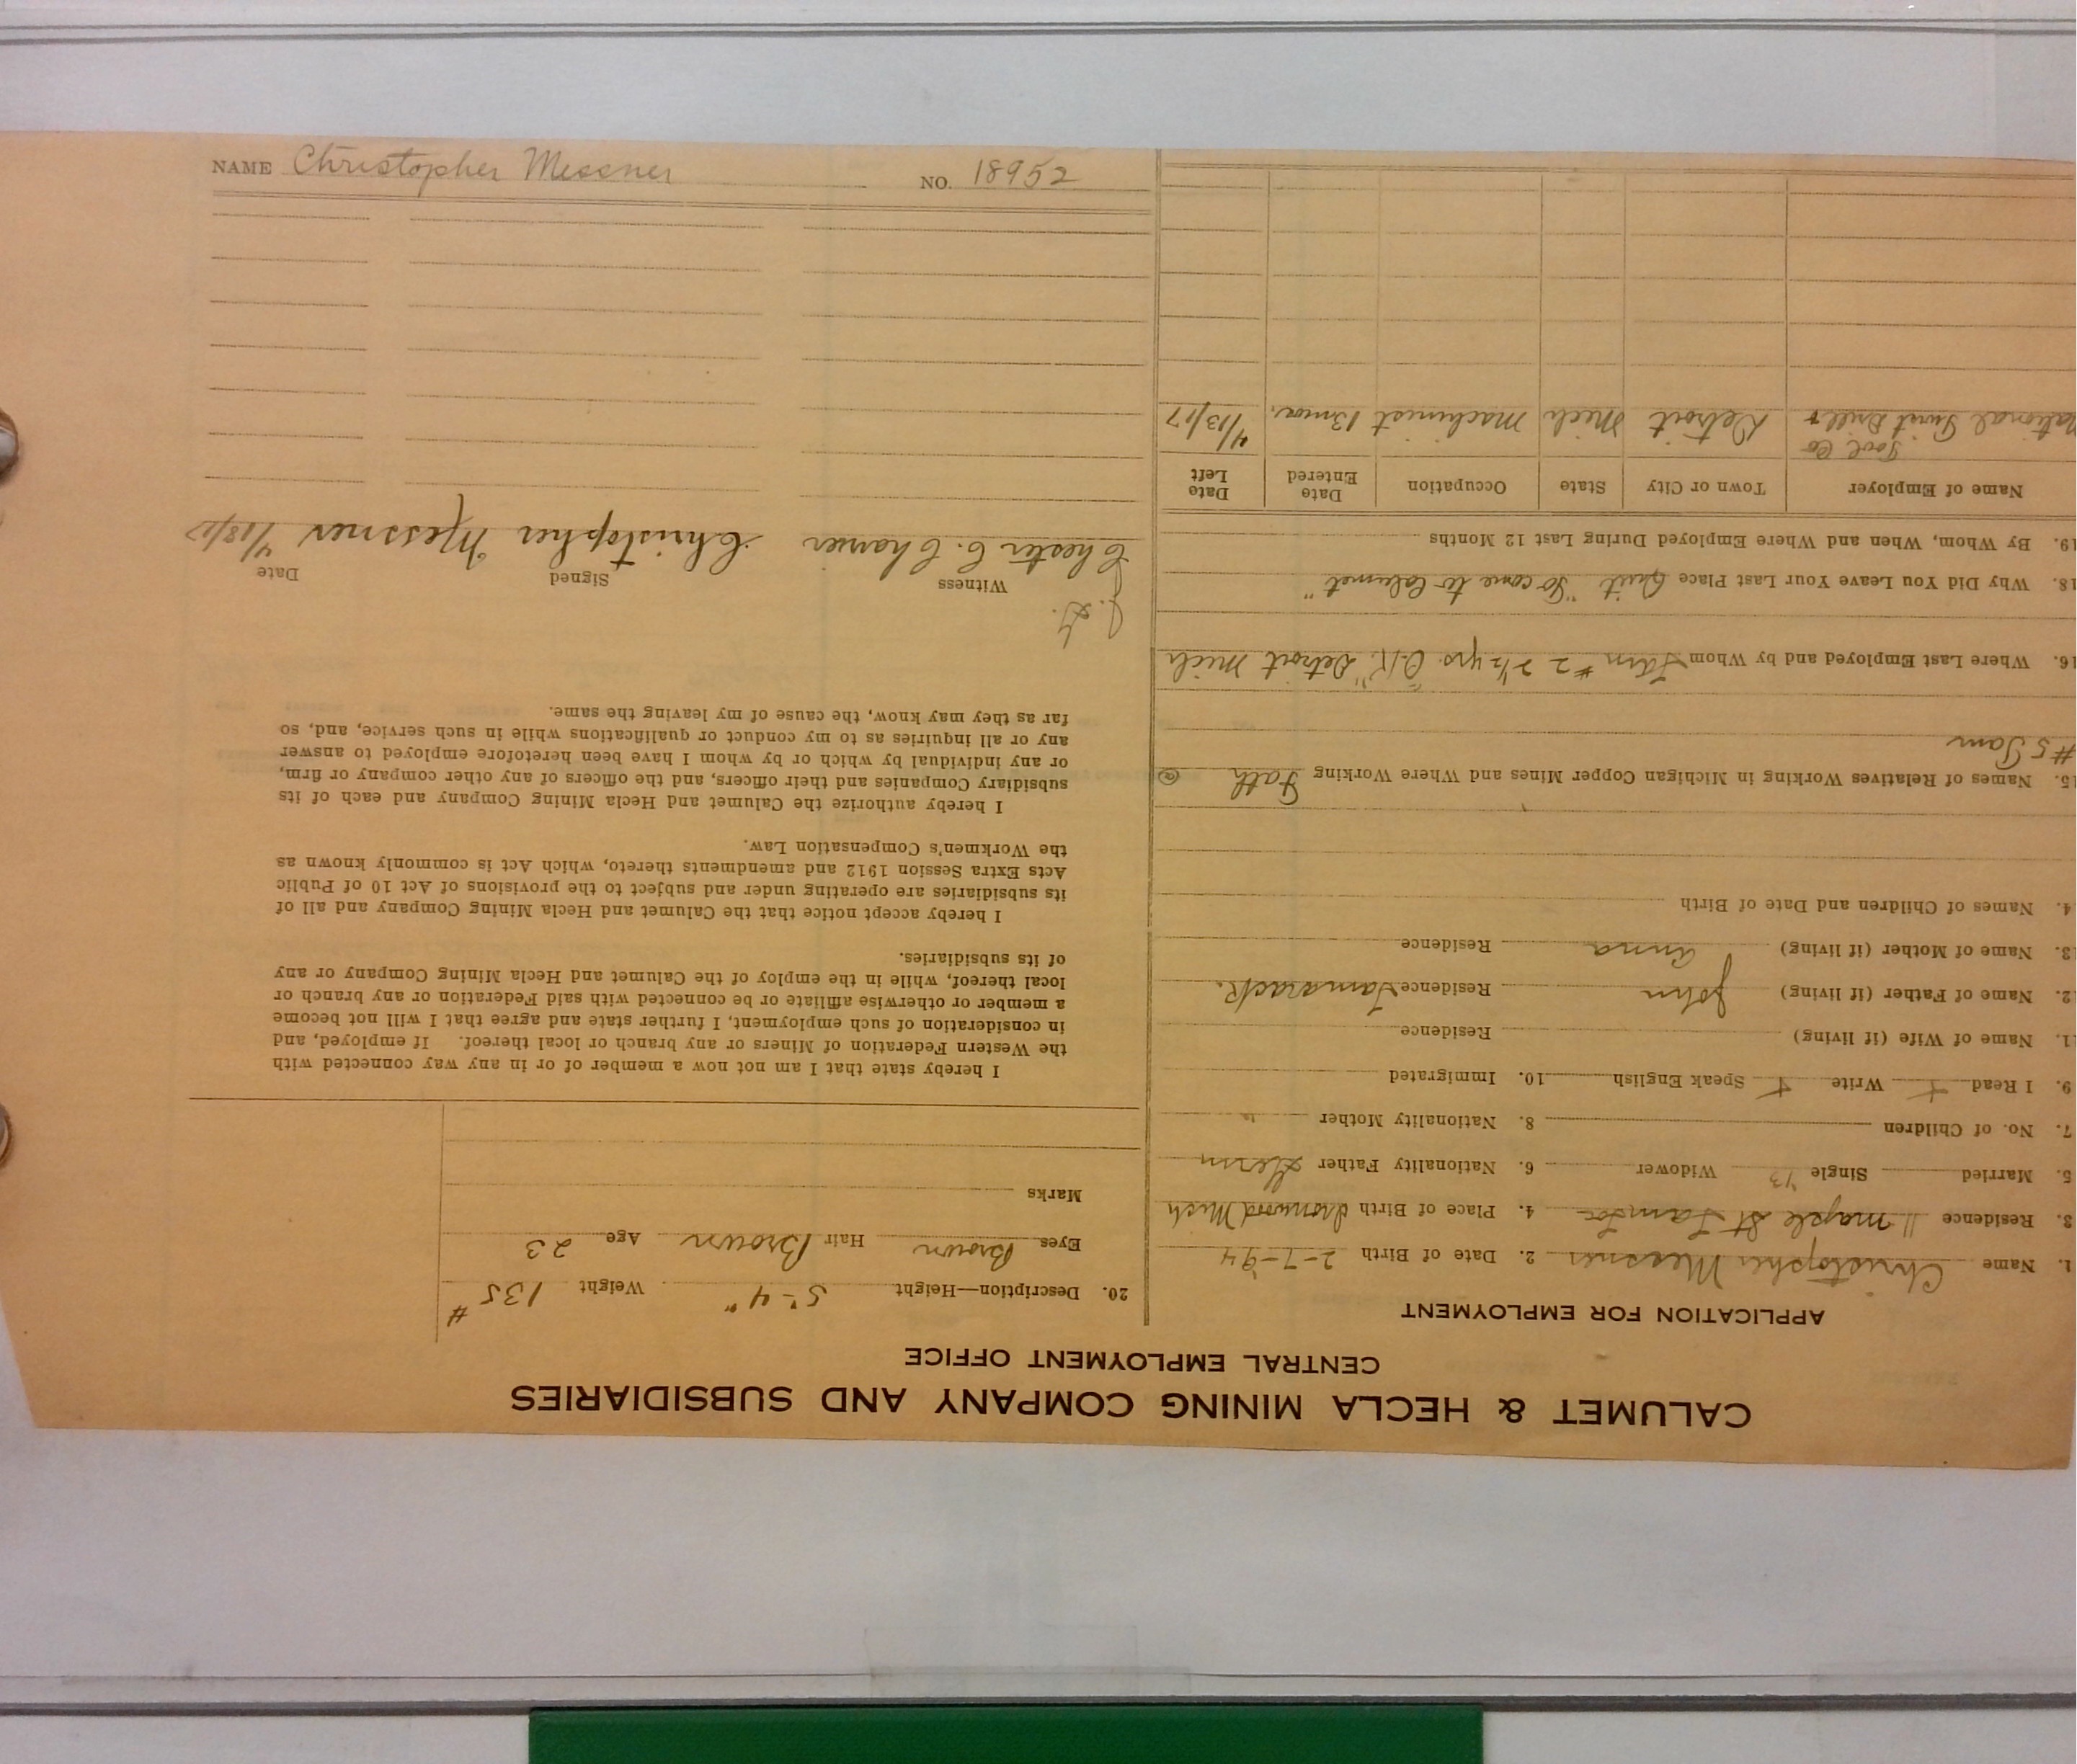 NAME Christopher Messner NO. 18952
CALUMET & HECLA MINING COMPANY AND SUBSIDIARIES
CENTRAL EMPLOYMENT OFFICE
APPLICATION FOR EMPLOYMENT
1. Name Christopher Messner 2. Date of Birth 2-7-94
3. Residence 11 Maple St 4. Place of Birth Ironwood Mich
5. Married Single Widower 6. Nationality Father Germ
7. No. of Children 8. Nationality Mother "
9. I Read + Write + Speak English 10. Immigrated
11. Name of Wife (if living) Residence
2. Name of Father (if living) John Residence Tamarack.
13. Name of Mother (if living) Anna Residence
4. Names of Children and Date of Birth
15. Names of Relatives Working in Michigan Copper Mines and Where Working Fath @
#5 Tam
16. Where Last Employed and by Whom Tam #2 2 1/2 yrs. "O.K." Detroit Mich
18. Why Did You Leave Your Last Place Quit "To come to Calumet"
19. By Whom, When and Where Employed During Last 12 Months
Name of Employer Town or City State Occupation Date Entered Date Left
National Twist Drill + Tool Co Detroit Mich Machinist 13 mos. 4/13/17
20. Description—Height 5'-4" Weight 135 #
Eyes Brown Hair Brown Age 23
Marks
I hereby state that I am not now a member of or in any way connected with
the Western Federation of Miners or any branch or local thereof. If employed, and
in consideration of such employment, I further state and agree that I will not become
a member or otherwise affiliate or be connected with said Federation or any branch or
local thereof, while in the employ of the Calumet and Hecla Mining Company or any
of its subsidiaries.
I hereby accept notice that the Calumet and Hecla Mining Company and all of
its subsidiaries are operating under and subject to the provisions of Act 10 of Public
Acts Extra Session 1912 and amendments thereto, which Act is commonly known as
the Workmen's Compensation Law.
I hereby authorize the Calumet and Hecla Mining Company and each of its
subsidiary Companies and their officers, and the officers of any other company or firm,
or any individual by which or by whom I have been heretofore employed to answer
any or all inquiries as to my conduct or qualifications while in such service, and, so
far as they may know, the cause of my leaving the same.
Witness Signed Date
Chester C. Christopher Messner 4/18/17